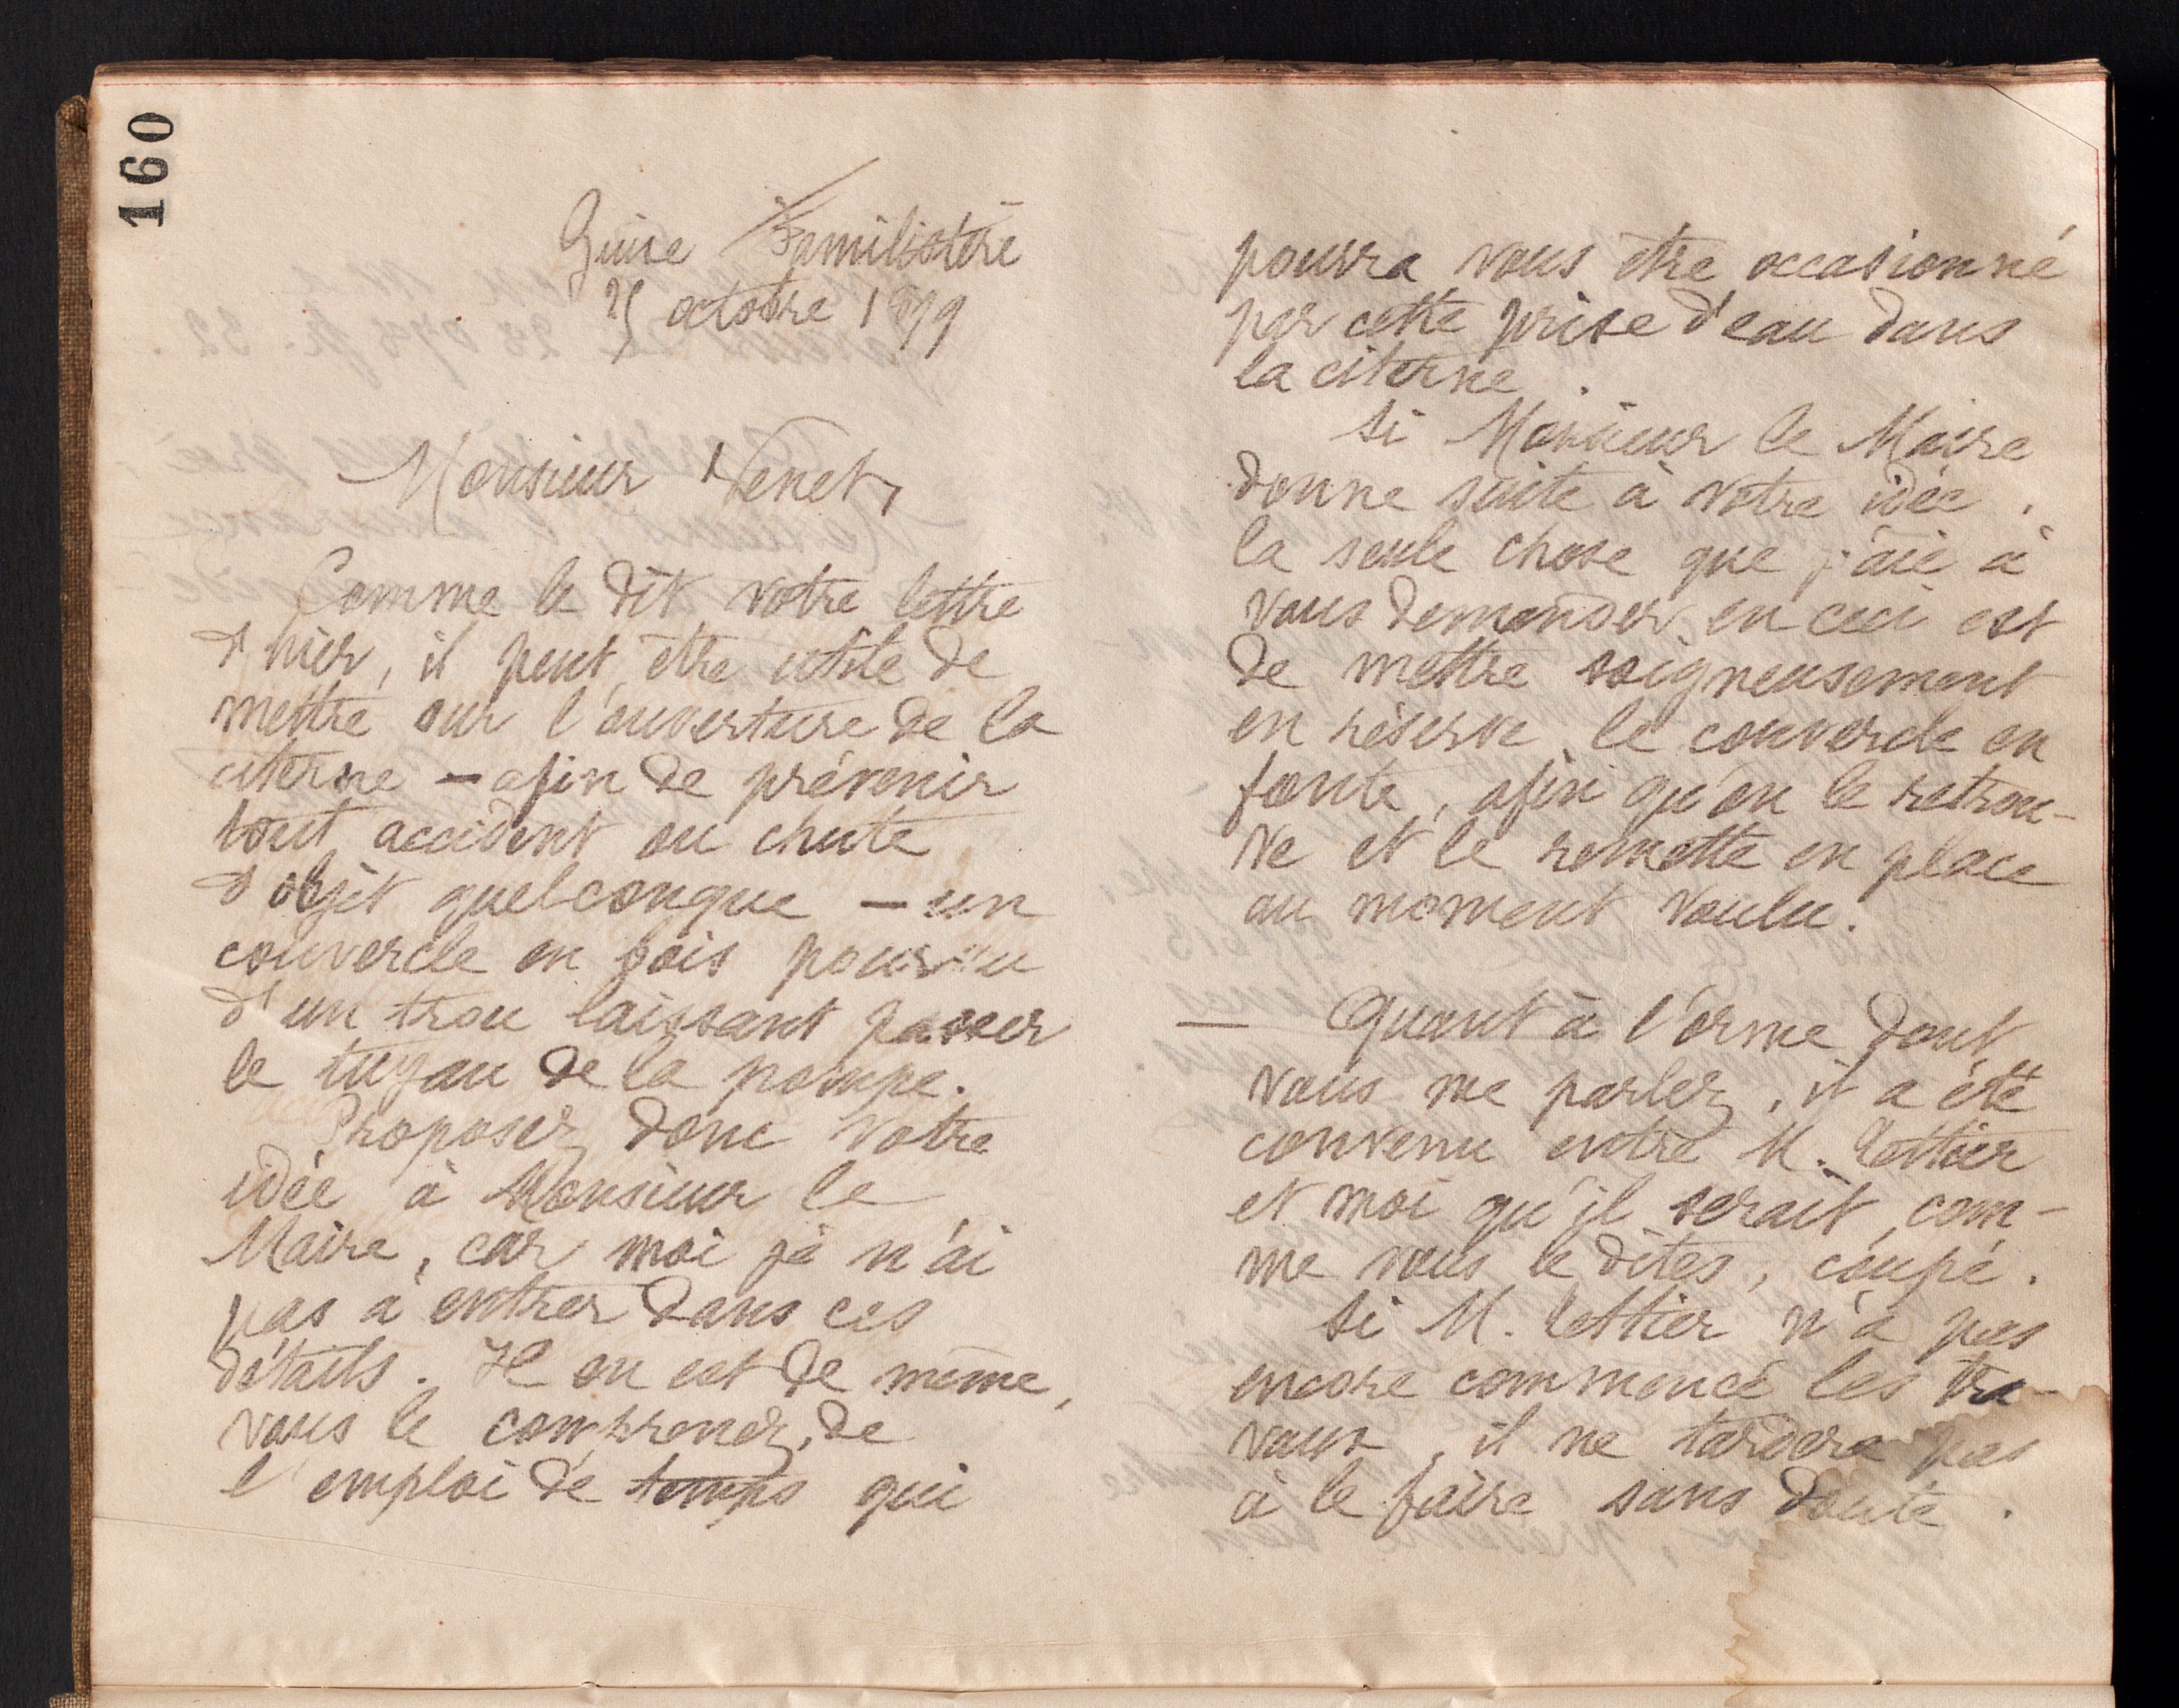 160
Guise Familistère
25 octobre 1899
Monsieur Venet,
Comme le dit votre lettre
d'hier, il peut être utile de
mettre sur l'ouverture de la
citerne — afin de prévenir
tout accident ou chute
d'objet quelconque — un
couvercle en bois pourvu
d'un trou laissant passer
le tuyau de la pompe.
Proposez donc votre
idée à Monsieur le
Maire, car moi je n'ai
pas à entrer dans ces
détails. Il en est de même,
vous le comprenez, de
l'emploi de temps qui
pourra vous être occasionné
par cette prise d'eau dans
la citerne.
Si Monsieur le Maire
donne suite à votre idée,
la seule chose que j'aie à
vous demander en ceci est
de mettre soigneusement
en réserve le couvercle en
fonte, afin qu'on le retrou-
ve et le remette en place
au moment voulu.
— Quant à l'orme dont
vous me parlez, il a été
convenu entre M. Lettier
et moi qu'il serait, com-
me vous le dites, coupé.
Si M. Lettier n'a pas
encore commencé les tra-
vaux, il ne tardera pas
à le faire sans doute.